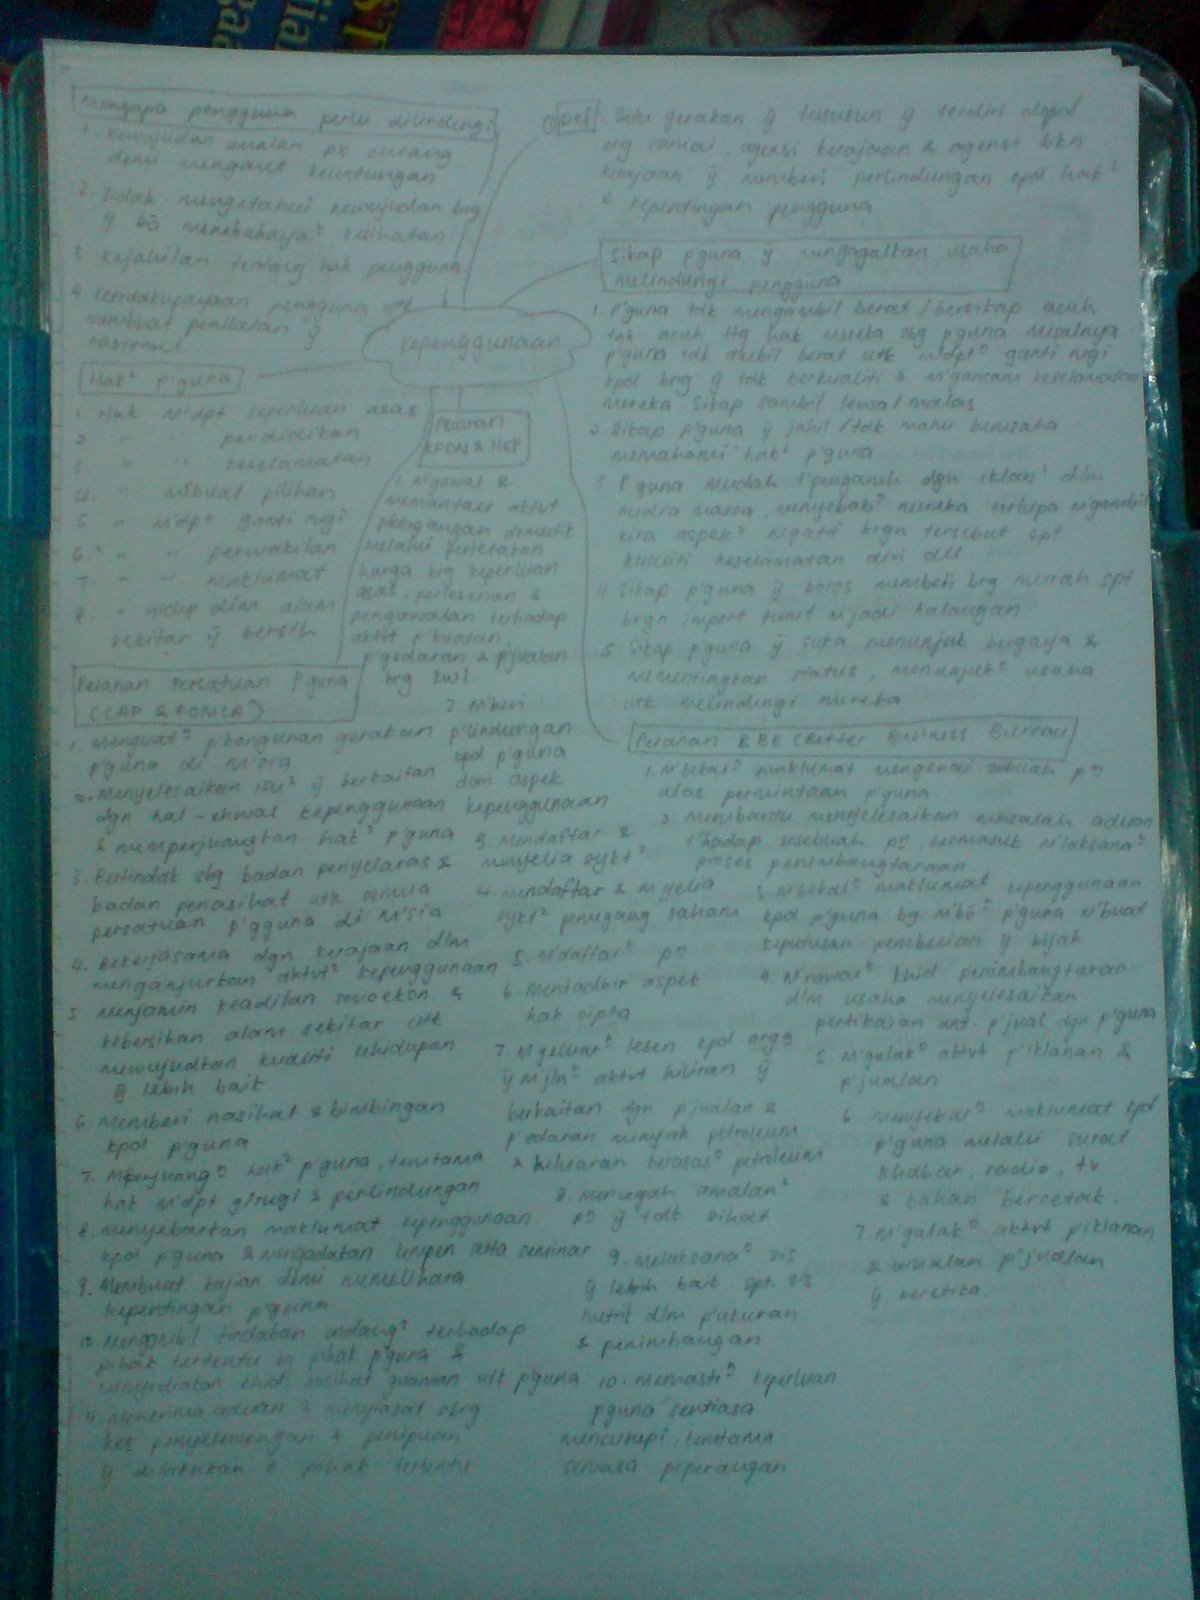 Mengapa pengguna perlu dilindungi
1. Kewujudan amalan pn curang
demi mengaut keuntungan
2. Tidak mengetahui kewujudan brg
ÿ bö membahaya² kesihatan
3. Kejahilan tentang hak pengguna
4. Ketidakupayaan pengguna utk
membuat penilaian ÿ
rasional
Kepenggunaan
Def
Satu gerakan ÿ tersusun ÿ terdiri
org ramai, agensi kerajaan & agensi bkn
kerajaan ÿ memberi perlindungan kpd hak²
& kepentingan pengguna
Sikap p'guna ÿ menggagalkan usaha
melindungi pengguna
1. P'guna tdk mengambil berat / bersikap acuh
tak acuh ttg hak mereka sbg p'guna. Misalnya
p'guna tdk ambil berat utk m'dpt² ganti rugi
kpd brng ÿ tdk berkualiti & m'gancam keselamatan
mereka. Sikap sambil lewa / malas
2. Sikap p'guna ÿ jahil / tdk mahu berusaha
memahami hak² p'guna
3. P'guna mudah t'pengaruh dgn iklan² dlm
media massa, menyebabⁿ mereka terlupa m'gambil
kira aspek² negatif brgn tersebut spt
kualiti keselamatan diri dll
4. Sikap p'guna ÿ boros membeli brg mewah spt
brgn import turut m'jadi halangan
5. Sikap p'guna ÿ suka menunjuk bergaya &
mementingkan status, menunjukⁿ usaha
utk melindungi mereka
Hak² p'guna
1. Hak m'dpt keperluan asas
2. " " pendidikan
3. " " keselamatan
4. " m'buat pilihan
5. " m'dpt ganti rugi
6. " " perwakilan
7. " " maklumat
8. " hidup dlm alam
sekitar ÿ bersih
Peranan
KPDN & HEP
1. M'gawal &
memantau aktvt
p'dagangan domestik
melalui perletakan
harga brg keperluan
asas, perlesenan &
pengawalan terhadap
aktvt p'buatan,
p'gedaran & p'jualan
brg kwl.
2. M'beri
p'lindungan
kpd p'guna
dlm aspek
kepenggunaan
3. Mendaftar &
menyelia sykt²
4. Mendaftar & m'yelia
sykt² pemegang saham
5. M'daftarⁿ pn
6. Mentadbir aspek
hak cipta
7. M'geluarⁿ lesen kpd orgn
ÿ m'jlnⁿ aktvt hiliran ÿ
berkaitan dgn p'jualan &
p'edaran minyak petroleum
& keluaran berasasⁿ petroleum
8. Mencegah amalan²
pn ÿ tdk sihat
9. Melaksanaⁿ sis
ÿ lebih baik spt. sis
metrik dlm p'ukuran
& penimbangan
10. Memastiⁿ keperluan
p'guna sentiasa
mencukupi, terutama
semasa peperangan
Peranan Persatuan P'guna
(CAP & FOMCA)
1. Menguatⁿ p'bangunan gerakan
p'guna di M'sia
2. Menyelesaikan isu² ÿ berkaitan
dgn hal-ehwal kepenggunaan
& memperjuangkan hak² p'guna
3. Bertindak sbg badan penyelaras &
badan penasihat utk semua
persatuan p'gguna di M'sia
4. Bekerjasama dgn kerajaan dlm
menganjurkan aktvt² kepenggunaan
5. Menjamin keadilan sosioekon. &
kebersihan alam sekitar utk
mewujudkan kualiti kehidupan
ÿ lebih baik
6. Memberi nasihat & bimbingan
kpd p'guna
7. M'perjuangⁿ hak² p'guna, terutama
hak m'dpt g/rugi & perlindungan
8. Menyebarkan maklumat kepenggunaan
kpd p'guna & mengadakan kempen serta seminar
9. Membuat kajian demi memelihara
kepentingan p'guna
10. Mengambil tindakan undang² terhadap
pihak tertentu bg pihak p'guna &
menyediakan khid. nasihat guaman utk p'guna
11. Menerima aduan & menyiasat sbrg
kes penyelewengan & penipuan
ÿ dilakukan pihak tertentu
Peranan BBB (Better Business Bureau)
1. M'bekalⁿ maklumat mengenai sebuah pn
atas permintaan p'guna
2. Membantu menyelesaikan masalah aduan
t'hadap sesebuah pn, termasuk m'laksanaⁿ
proses penimbangtaraan
3. M'bekalⁿ maklumat kepenggunaan
kpd p'guna bg m'böⁿ p'guna m'buat
keputusan pembelian ÿ bijak
4. M'nawarⁿ khid penimbangtaraan
dlm usaha menyelesaikan
pertikaian ant. p'jual dgn p'guna
5. M'galakⁿ aktvt p'iklanan &
p'jualan
6. Menyebarⁿ maklumat kpd
p'guna melalui surat
khabar, radio, tv
& bahan bercetak.
7. M'galakⁿ aktvt p'iklanan
& amalan p'jualan
ÿ beretika.